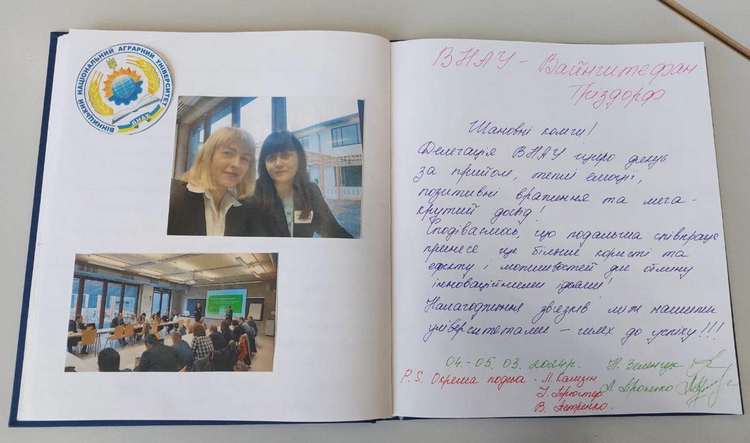 ВІННИЦЬКИЙ НАЦІОНАЛЬНИЙ АГРАРНИЙ УНІВЕРСИТЕТ
ВНАУ
ВНАУ - Вайнштефан
Тріздорф
Шановні колеги!
Делегація ВНАУ щиро дякує
за прийом, теплі емоції,
позитивні враження та мега-
крутий досвід!
Сподіваємось, що подальша співпраця
принесе ще більше користі та
ефекту і можливостей для обміну
інноваційними ідеями!
Налагодження звʼязків між нашими
університетами - шлях до успіху!!!
04-05. 03. 2024р.
P.S. Окрема подяка -